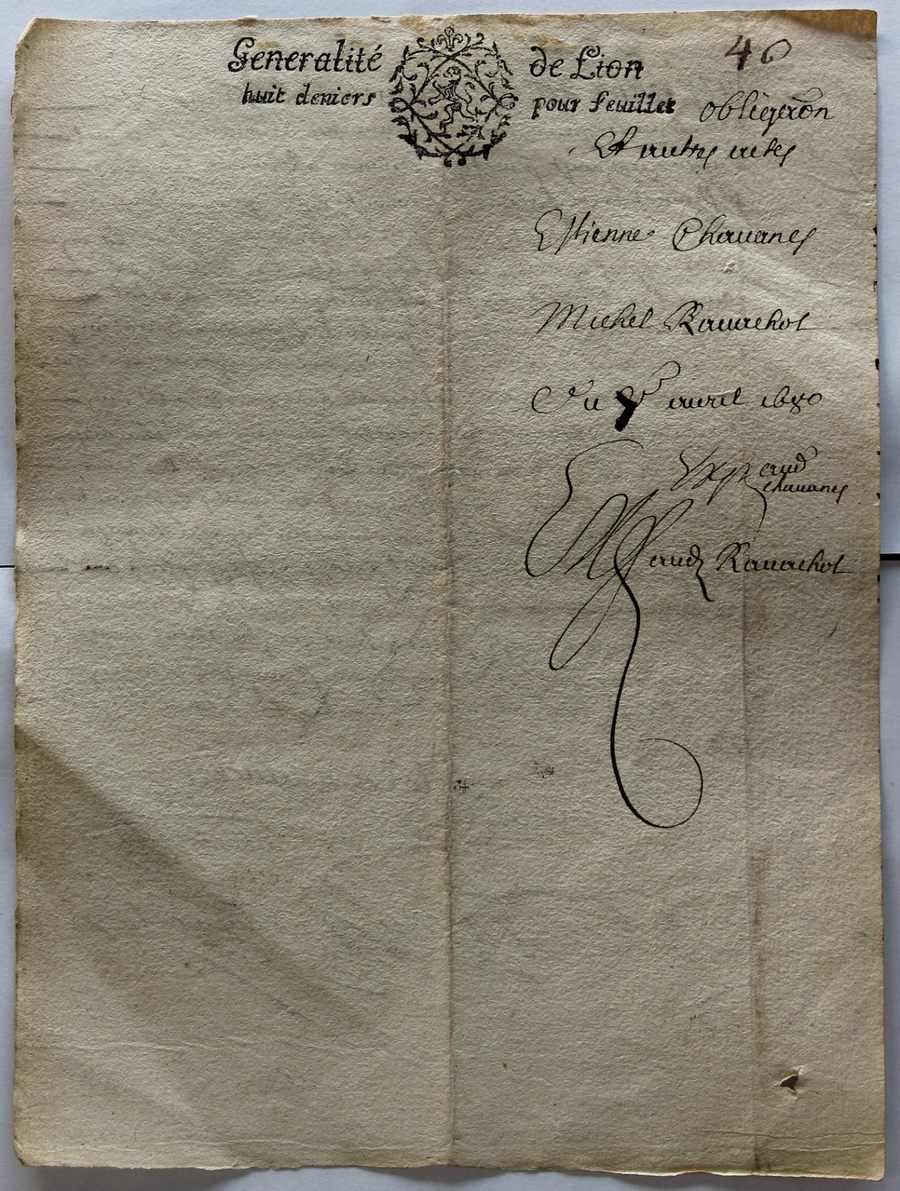 40
Generalité de Lion
huit deniers pour feuillet
obligaõn
Et autres actes
Estienne Chauanes
Michel Rauachol
Du avril 1680
Exp
aud
chauanes
aud Rauachol